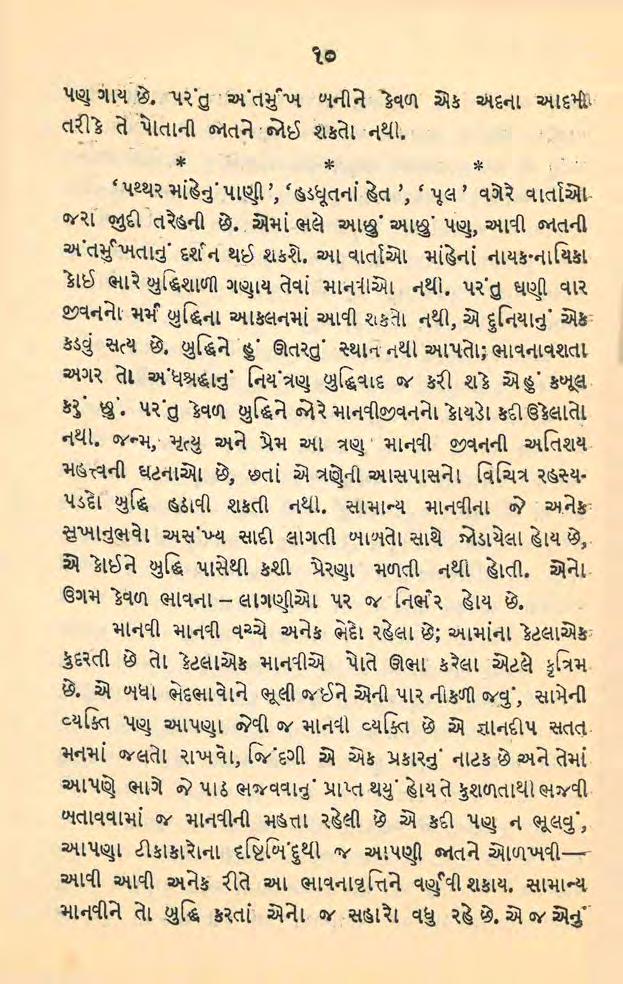 ૧૦
પણ ગાય છે. પરંતુ અંતર્મુખ બનીને કેવળ એક અદના આદમી
તરીકે તે પોતાની જાતને જોઈ શકતો નથી.
* * *
‘પથ્થર માંહેનું પાણી’, ‘હડધૂતનાં હેત’, ‘પૂલ’ વગેરે વાર્તાઓ
જરા જુદી તરેહની છે. એમાં ભલે આછું આછું પણ, આવી જાતની
અંતર્મુખતાનું દર્શન થઈ શકશે. આ વાર્તાઓ માંહેનાં નાયક-નાયિકા
કોઈ ભારે બુદ્ધિશાળી ગણાય તેવાં માનવીઓ નથી. પરંતુ ઘણી વાર
જીવનનો મર્મ બુદ્ધિના આકલનમાં આવી શકતો નથી, એ દુનિયાનું એક
કડવું સત્ય છે. બુદ્ધિને હું ઊતરતું સ્થાન નથી આપતો; ભાવનાવશતા
અગર તો અંધશ્રદ્ધાનું નિયંત્રણ બુદ્ધિવાદ જ કરી શકે એ હું કબૂલ
કરું છું. પરંતુ કેવળ બુદ્ધિને જોરે માનવીજીવનનો કોયડો કદી ઉકેલાતો
નથી. જન્મ, મૃત્યુ અને પ્રેમ આ ત્રણ માનવી જીવનની અતિશય
મહત્ત્વની ઘટનાઓ છે, છતાં એ ત્રણેની આસપાસનો વિચિત્ર રહસ્ય-
પડદો બુદ્ધિ હઠાવી શકતી નથી. સામાન્ય માનવીના જે અનેક
સુખાનુભવો અસંખ્ય સાદી લાગતી બાબતો સાથે જોડાયેલા હોય છે,
એ કોઈને બુદ્ધિ પાસેથી કશી પ્રેરણા મળતી નથી હોતી. એનો
ઉગમ કેવળ ભાવના – લાગણીઓ પર જ નિર્ભર હોય છે.
માનવી માનવી વચ્ચે અનેક ભેદો રહેલા છે; આમાંના કેટલાએક
કુદરતી છે તો કેટલાએક માનવીએ પોતે ઊભા કરેલા એટલે કૃત્રિમ
છે. એ બધા ભેદભાવોને ભૂલી જઈને એની પાર નીકળી જવું, સામેની
વ્યક્તિ પણ આપણા જેવી જ માનવી વ્યક્તિ છે એ જ્ઞાનદીપ સતત
મનમાં જલતો રાખવો, જિંદગી એ એક પ્રકારનું નાટક છે અને તેમાં
આપણે ભાગે જે પાઠ ભજવવાનું પ્રાપ્ત થયું હોય તે કુશળતાથી ભજવી
બતાવવામાં જ માનવીની મહત્તા રહેલી છે એ કદી પણ ન ભૂલવું,
આપણા ટીકાકારોના દૃષ્ટિબિંદુથી જ આપણી જાતને ઓળખવી—
આવી આવી અનેક રીતે આ ભાવનાવૃત્તિને વર્ણવી શકાય. સામાન્ય
માનવીને તો બુદ્ધિ કરતાં એનો જ સહારો વધુ રહે છે. એ જ એનું